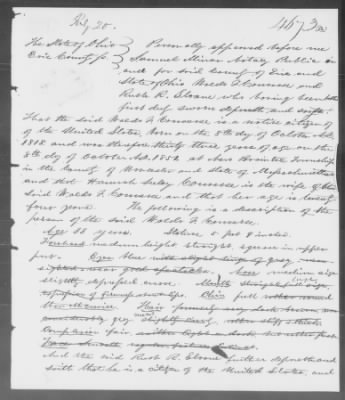 July 25.
4673
The State of Ohio } Personally appeared before me
Erie County ss. } Samuel Minor Notary Public in
and for said County of Erie and
State of Ohio Waldo F. Converse and
Rush R. Sloane who having been both
first duly sworn depose and
That the said Waldo F. Converse is a native citizen of
of the United States, born on the 8th day of October A.D.
1818 and was therefore thirty three years of age on the
8th day of October A.D. 1852 at New Braintree Township
in the County of Worcester and State of Massachusetts
and that Hannah Converse is the wife of the
said Waldo F. Converse and that her age is twenty
four years. The following is a description of the
person of the said Waldo F. Converse
Age 33 years. Stature 5 feet 8 inches.
Forehead medium hight straight, square in upper
part. Eyes blue with slight tinge of grey
good spectacles. Nose medium size
slightly depressed Mouth straight full
Chin full rather round
Hair formerly very dark brown
considerably grey slightly curly
Complexion fair
Face smooth regular
And the said Rush R. Sloane further deposeth and
saith that he is a citizen of the United States, and